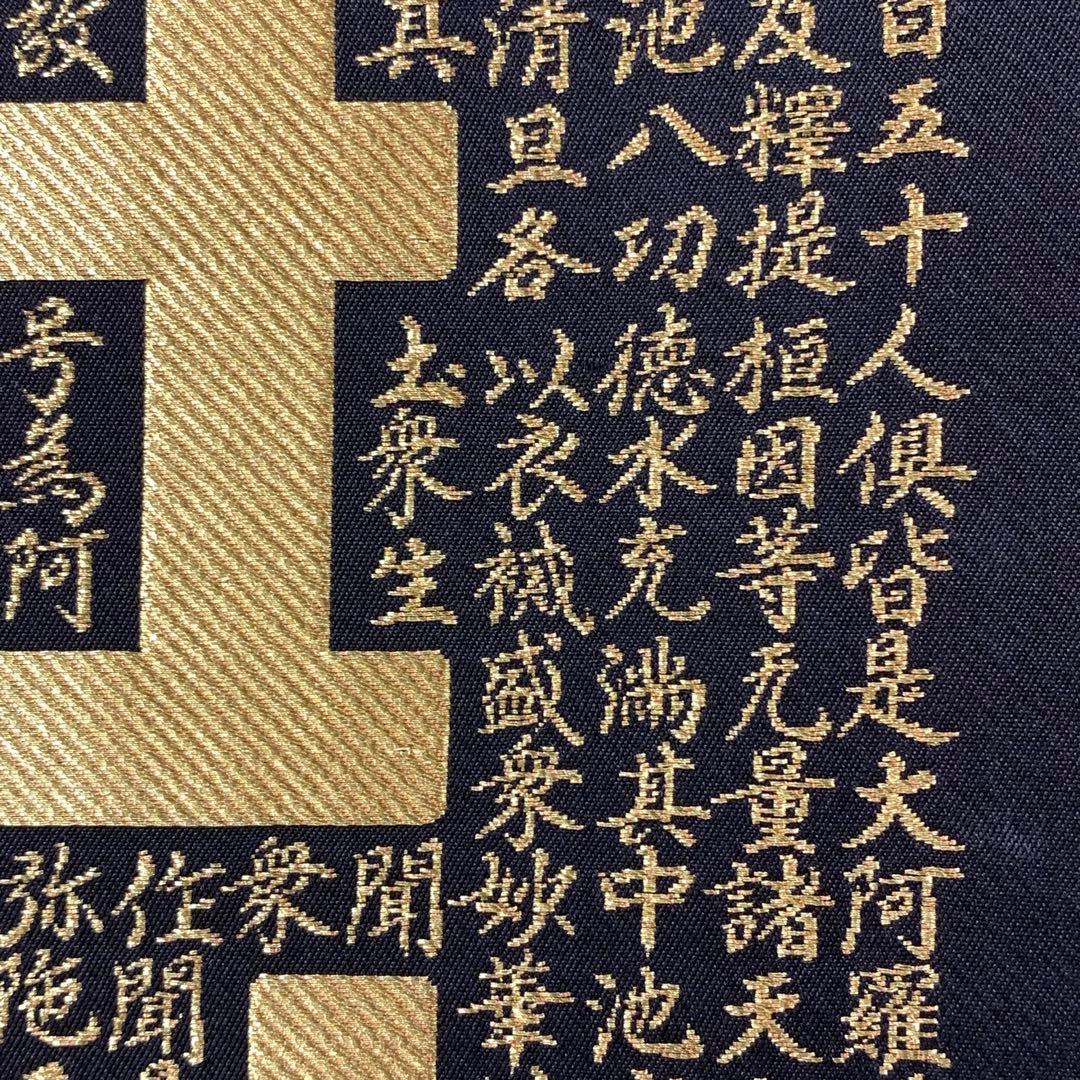 百五十人俱皆是大阿羅
及釋提桓因等无量諸天
池八功德水充滿其中池
清旦各以衣裓盛衆妙華
其
土衆生
聞
衆
作聞
号為阿
弥陁
敬